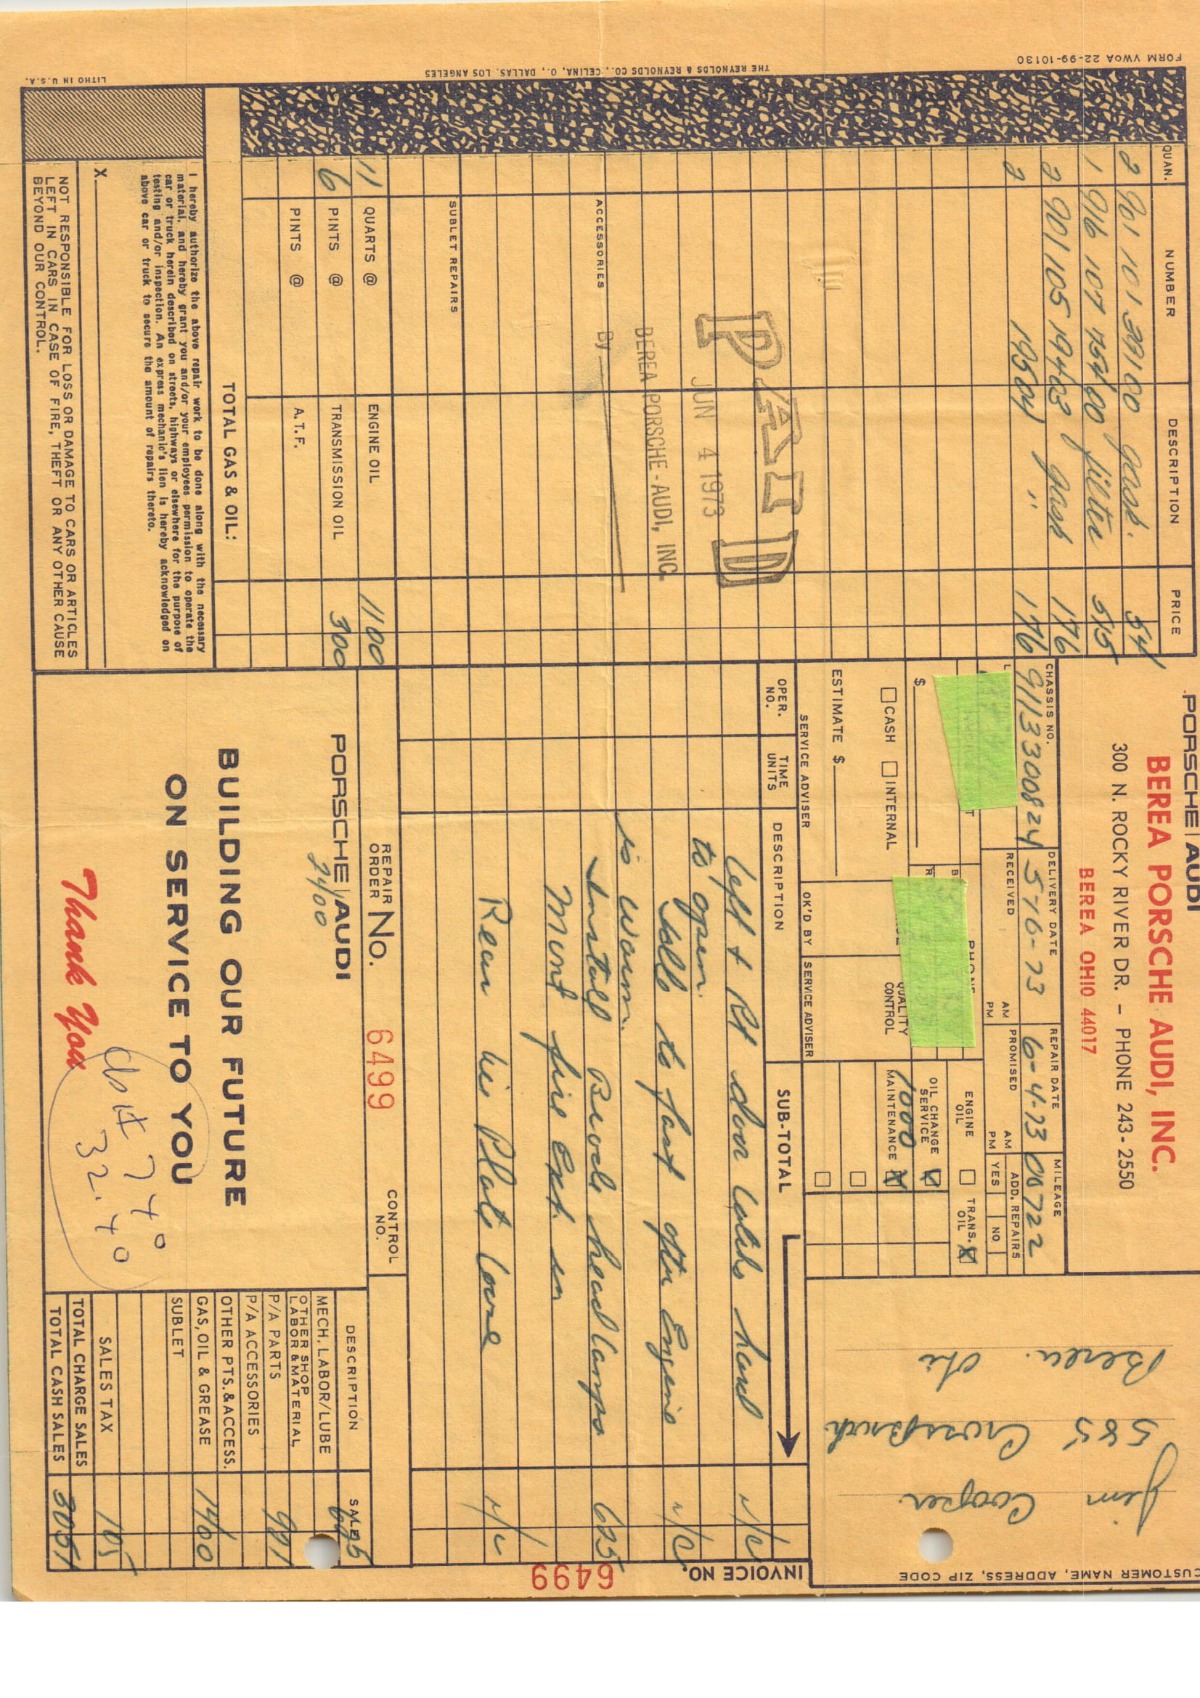 PORSCHE | AUDI
BEREA PORSCHE AUDI, INC.
300 N. ROCKY RIVER DR. – PHONE 243-2550
BEREA OHIO 44017
CUSTOMER NAME, ADDRESS, ZIP CODE
Jim Cooper
585
Berea. Ohi
QUAN. NUMBER DESCRIPTION PRICE
2 901 101 39100 gask. 54
1 916 107 75400 filter 515
2 901 105 19403 gask 176
2 19504 " 176
PAID
JUN 4 1973
BEREA PORSCHE-AUDI, INC.
By
ACCESSORIES
SUBLET REPAIRS
11 QUARTS @ ENGINE OIL 1100
6 PINTS @ TRANSMISSION OIL 300
PINTS @ A.T.F.
TOTAL GAS & OIL:
I hereby authorize the above repair work to be done along with the necessary
material, and hereby grant you and/or your employees permission to operate the
car or truck herein described on streets, highways or elsewhere for the purpose of
testing and/or inspection. An express mechanic's lien is hereby acknowledged on
above car or truck to secure the amount of repairs thereto.
X
NOT RESPONSIBLE FOR LOSS OR DAMAGE TO CARS OR ARTICLES
LEFT IN CARS IN CASE OF FIRE, THEFT OR ANY OTHER CAUSE
BEYOND OUR CONTROL.
CHASSIS NO. DELIVERY DATE REPAIR DATE MILEAGE
9113300824 5-16-73 6-4-73 00722
RECEIVED AM PM PROMISED AM PM ADD. REPAIRS YES NO
PHONE
ENGINE OIL TRANS. OIL
OIL CHANGE SERVICE
1000 MAINTENANCE
QUALITY CONTROL
$
CASH INTERNAL
ESTIMATE $
SERVICE ADVISER OK'D BY SERVICE ADVISER
OPER. NO. TIME UNITS DESCRIPTION SUB-TOTAL
INVOICE NO. 6499
Left & Rt door locks hard N/C
to open.
Idle to fast after Engine N/C
is warm.
Install Bevele headlamps 625
Mount fire Ext. in
Rear lic Plate loose N/C
REPAIR ORDER No. 6499 CONTROL NO.
PORSCHE | AUDI
2400
BUILDING OUR FUTURE
ON SERVICE TO YOU
Thank You
74°
32.4°
DESCRIPTION SALES
MECH. LABOR/LUBE 625
OTHER SHOP LABOR & MATERIAL
P/A PARTS 921
P/A ACCESSORIES
OTHER PTS. & ACCESS.
GAS, OIL & GREASE 1400
SUBLET
SALES TAX 105
TOTAL CHARGE SALES
TOTAL CASH SALES 3051
FORM VWOA 22-99-10130
THE REYNOLDS & REYNOLDS CO., CELINA, O., DALLAS, LOS ANGELES
LITHO IN U.S.A.